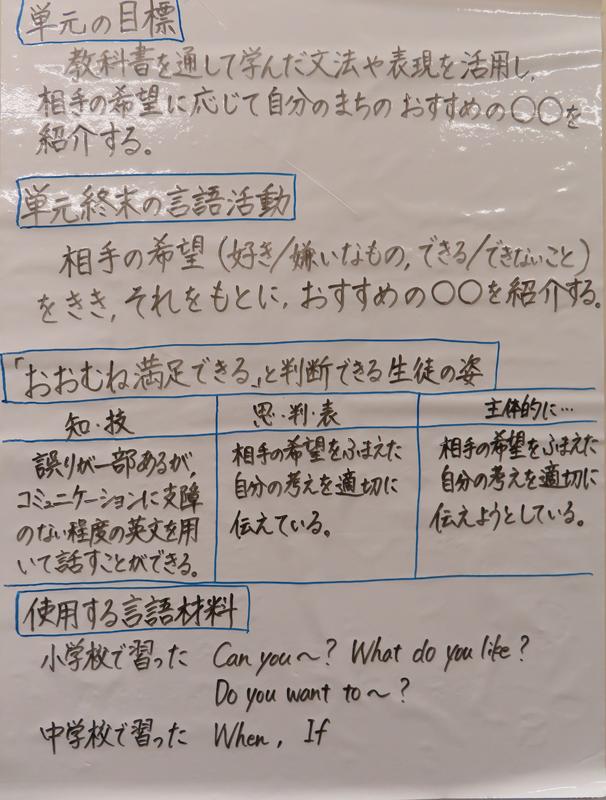 単元の目標
教科書を通して学んだ文法や表現を活用し、
相手の希望に応じて自分のまちのおすすめの〇〇を
紹介する。
単元終末の言語活動
相手の希望(好き/嫌いなもの,できる/できないこと)
をきき,それをもとに,おすすめの〇〇を紹介する。
「おおむね満足できる」と判断できる生徒の姿
知・技
誤りが一部あるが,
コミュニケーションに支障
のない程度の英文を用
いて話すことができる。
思・判・表
相手の希望をふまえた
自分の考えを適切に
伝えている。
主体的に…
相手の希望をふまえた
自分の考えを適切に
伝えようとしている。
使用する言語材料
小学校で習った Can you~? What do you like?
Do you want to~?
中学校で習った When, If